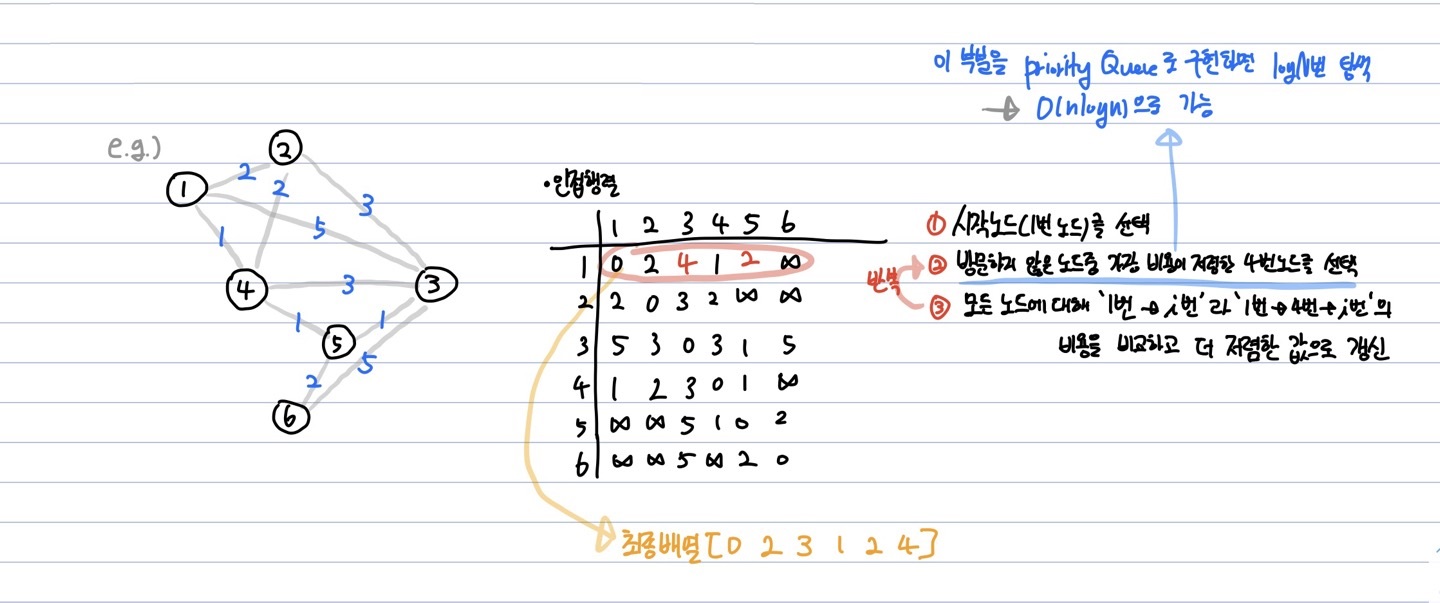 이 부분을 priority Queue로 구현하면 logN번 탐색
→ O(nlogn)으로 가능
e.g.)
1
2
3
4
5
6
2
2
3
5
1
3
1
1
5
2
•인접행렬
1 2 3 4 5 6
1 0 2 4 1 2 ∞
2 2 0 3 2 ∞ ∞
3 5 3 0 3 1 5
4 1 2 3 0 1 ∞
5 ∞ ∞ 5 1 0 2
6 ∞ ∞ 5 ∞ 2 0
최종배열[0 2 3 1 2 4]
① 시작노드(1번 노드)를 선택
② 방문하지 않은 노드중 가장 비용이 저렴한 4번노드를 선택
반복
③ 모든 노드에 대해 '1번→i번'과 '1번→4번→i번'의
비용을 비교하고 더 저렴한 값으로 갱신